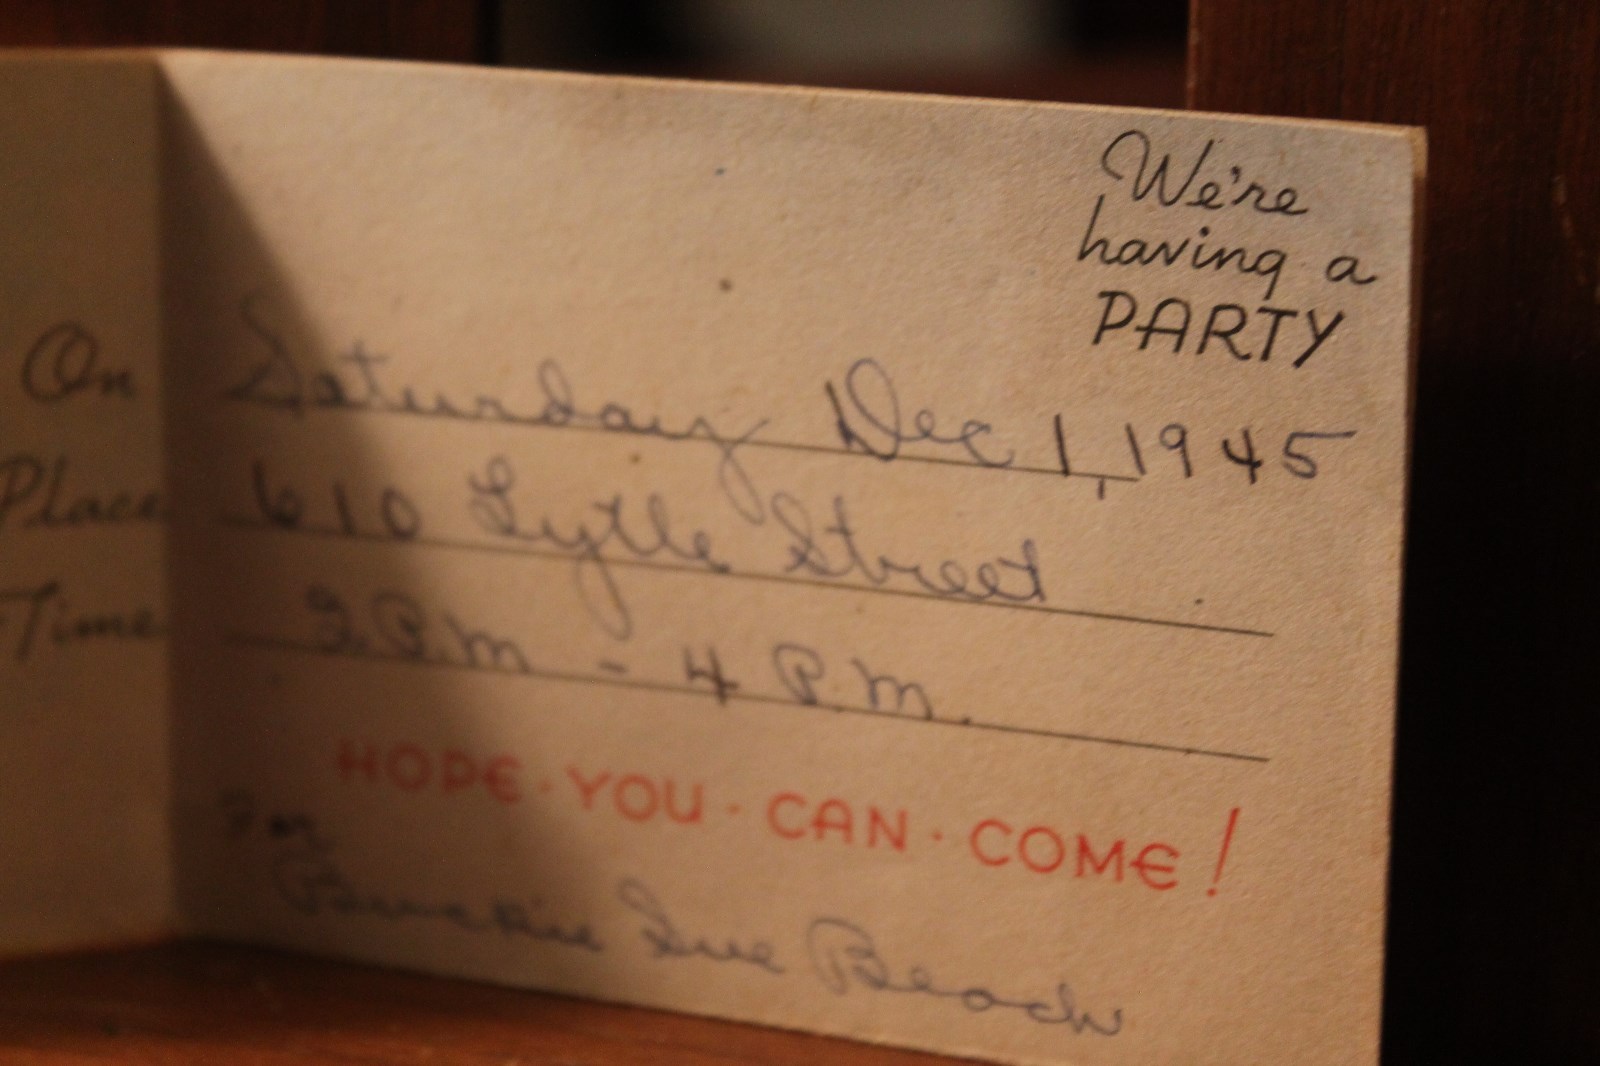 We're
having a
PARTY
On Saturday Dec 1, 1945
Place 610 Lytle Street
Time P.m - 4 P.m.
HOPE · YOU · CAN · COME!
For
Sue Beach